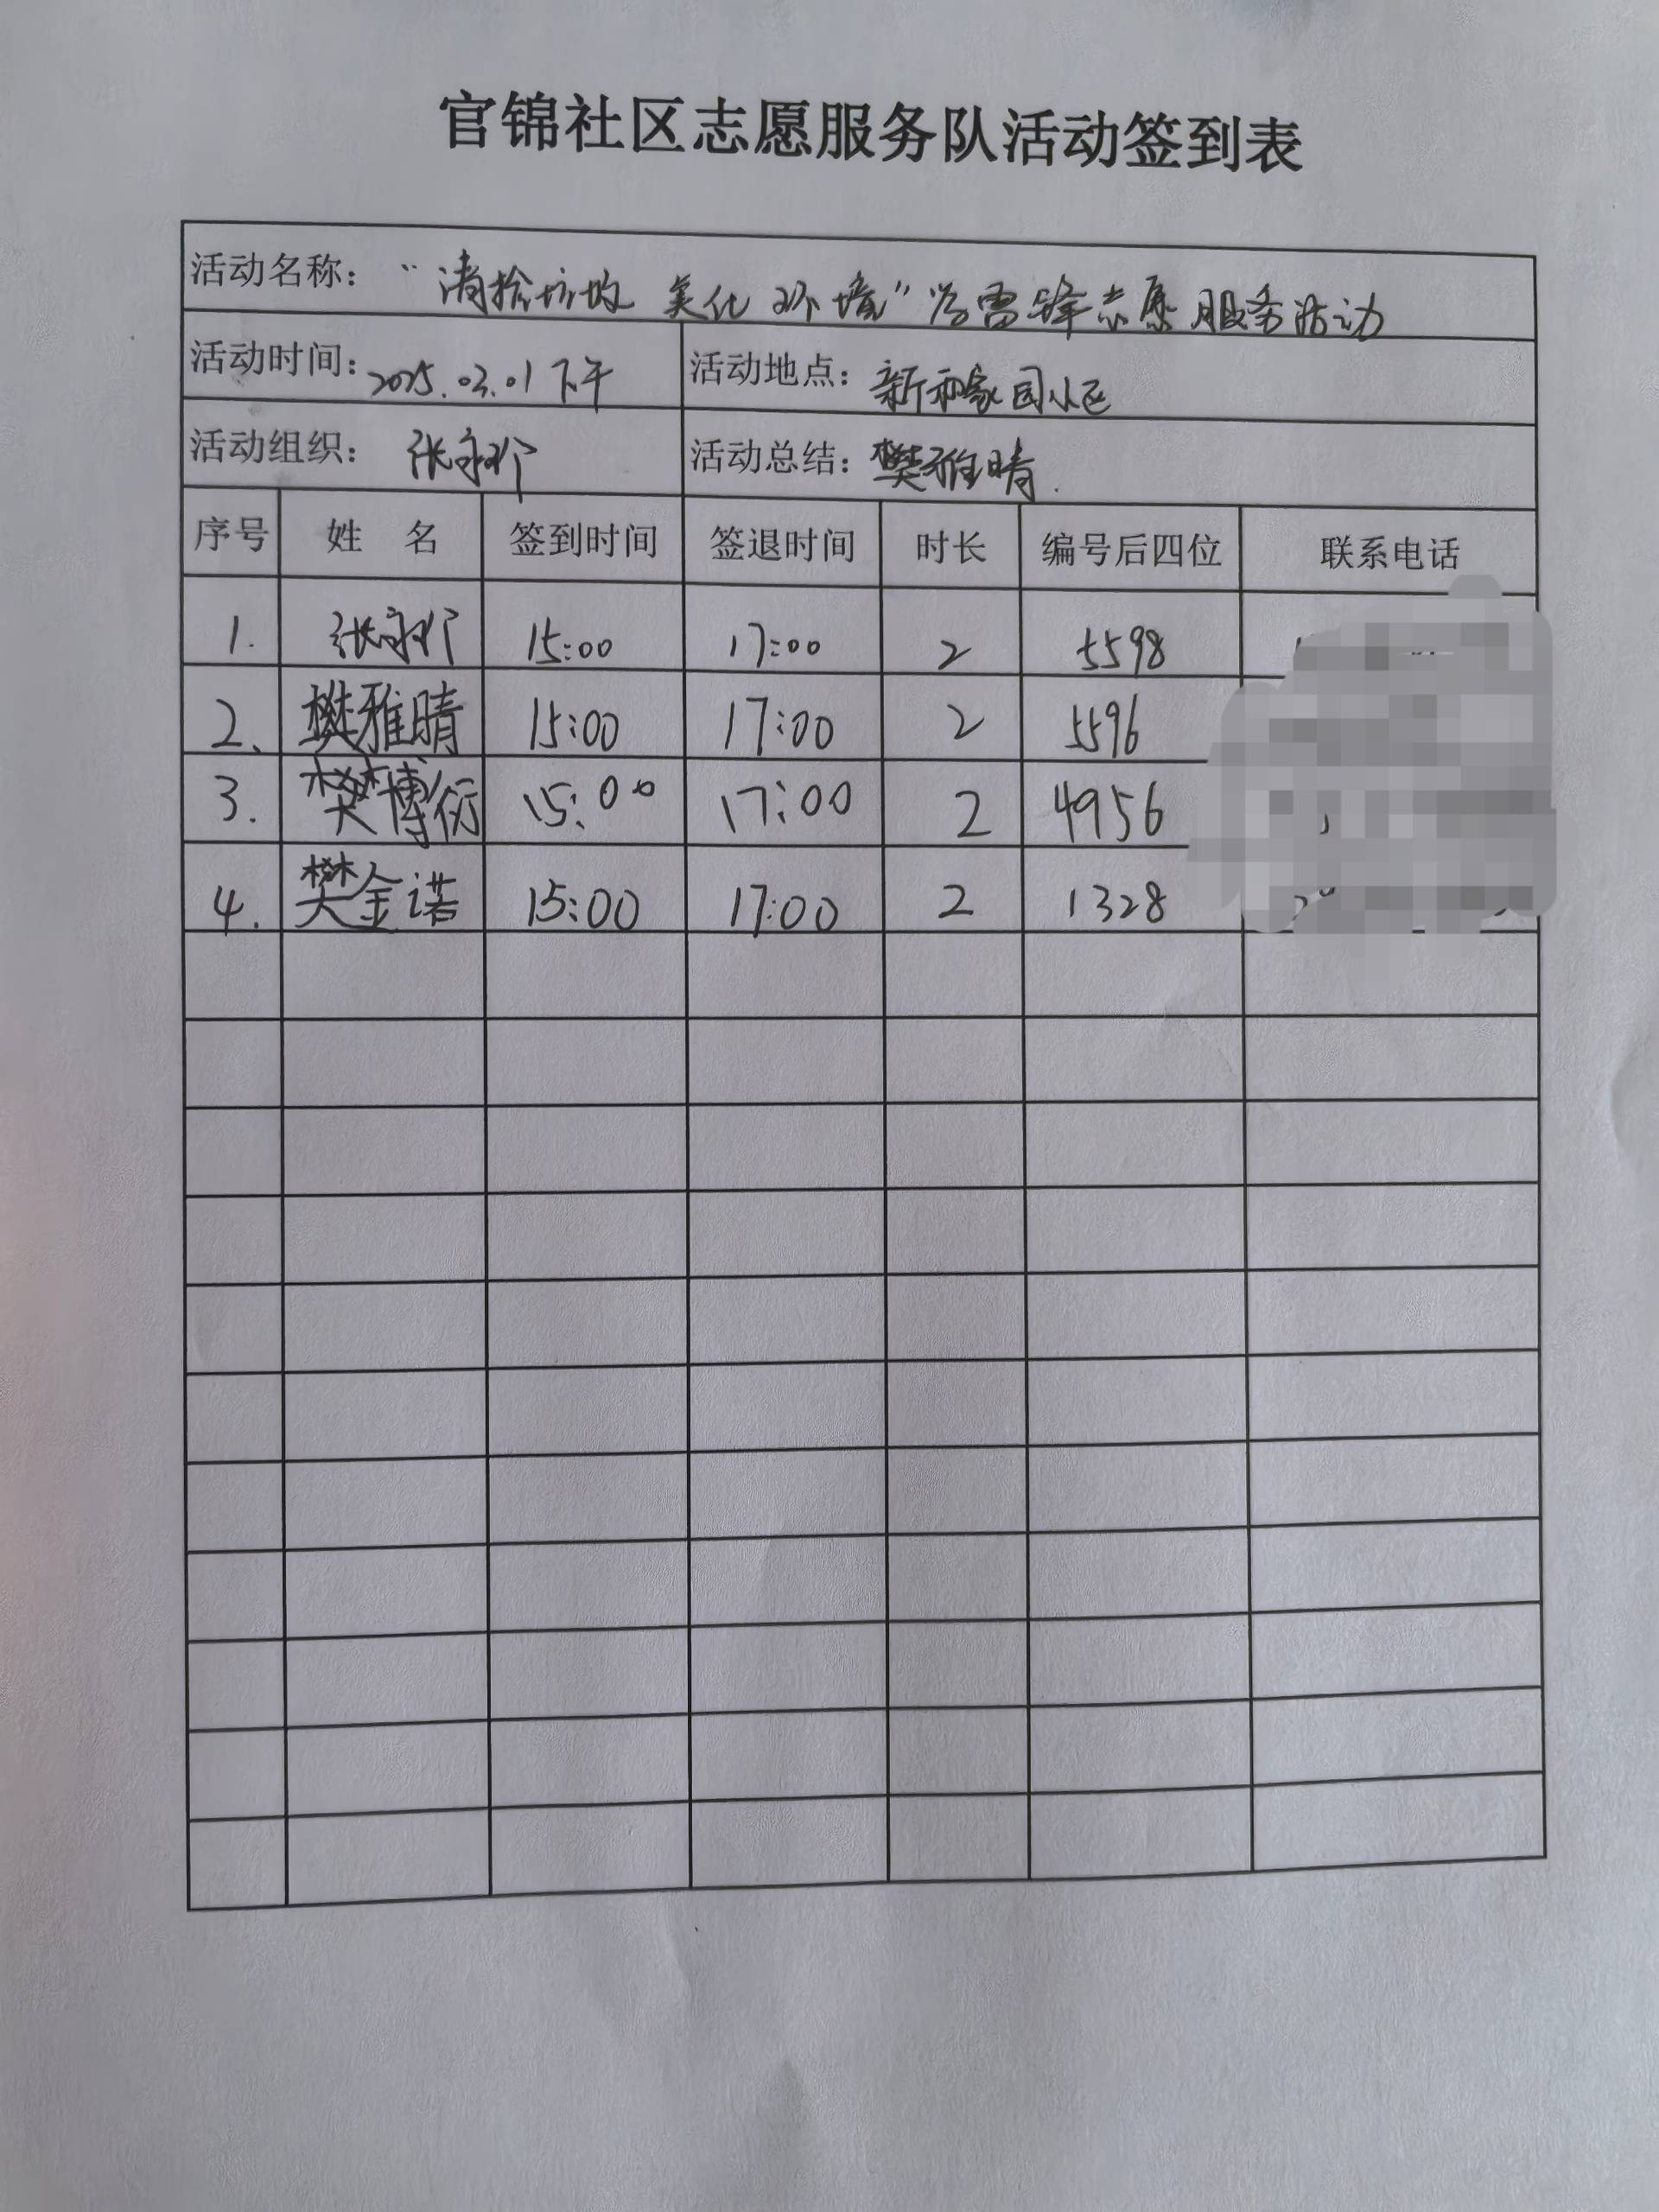 官锦社区志愿服务队活动签到表
活动名称：“清捡垃圾 美化环境”学雷锋志愿服务活动
活动时间：2025.03.01下午 活动地点：新和家园小区
活动组织：张 活动总结：樊雅晴.
序号 姓 名 签到时间 签退时间 时长 编号后四位 联系电话
1. 张 15:00 17:00 2 5598
2、 樊雅晴 15:00 17:00 2 5596
3. 樊博衍 15:00 17:00 2 4956
4. 樊金诺 15:00 17:00 2 1328